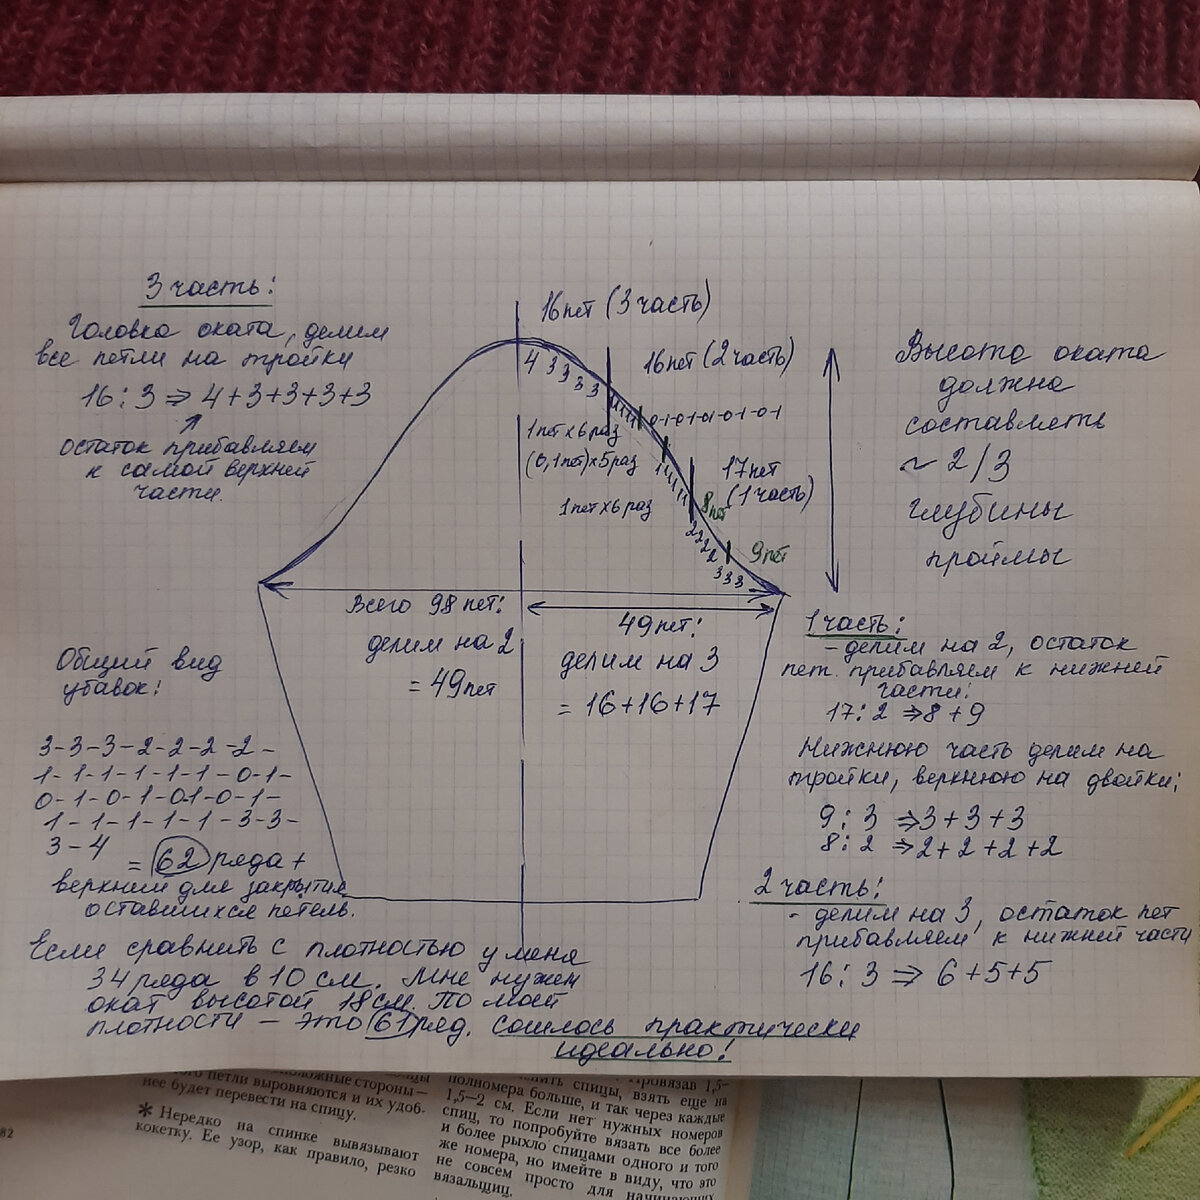 3 часть:
Головка оката, делим
все петли на тройки
16 : 3 ⇒ 4+3+3+3+3
остаток прибавляем
к самой верхней
части.
16 пет (3 часть)
4 3 3 3 3
16 пет (2 часть)
0-1-0-1-0-1-0-1-0-1
1 пет х 6 раз
(0, 1 пет) х 5 раз
1 пет х 6 раз
17 пет
(1 часть)
8 пет
2 2 2 2
9 пет
3 3 3
Высота оката
должна
составлять
~ 2/3
глубины
проймы
Всего 98 пет:
делим на 2
= 49 пет
49 пет:
делим на 3
= 16+16+17
1 часть:
- делим на 2, остаток
пет. прибавляем к нижней
части:
17 : 2 ⇒ 8+9
Нижнюю часть делим на
тройки, верхнюю на двойки:
9 : 3 ⇒ 3+3+3
8 : 2 ⇒ 2+2+2+2
2 часть:
- делим на 3, остаток пет
прибавляем к нижней части
16 : 3 ⇒ 6+5+5
Общий вид
убавок:
3-3-3-2-2-2-2-
1-1-1-1-1-1-0-1-
0-1-0-1-0-1-0-1-
1-1-1-1-1-3-3-
3-4
= 62 ряда +
верхний для закрытия
оставшихся петель.
Если сравнить с плотностью у меня
34 ряда в 10 см. Мне нужен
окат высотой 18 см. По моей
плотности - это 61 ряд. Сошлось практически
идеально!
петли выровняются и их удоб-
нее будет перевести на спицу.
* Нередко на спинке вывязывают
кокетку. Ее узор, как правило, резко
82
спицы, взять еще на
полномера больше, и так через каждые
1,5—2 см. Если нет нужных номеров
спиц, то попробуйте вязать все более
и более рыхло спицами одного и того
же номера, но имейте в виду, что это
не совсем просто для начинающих
вязальщиц.